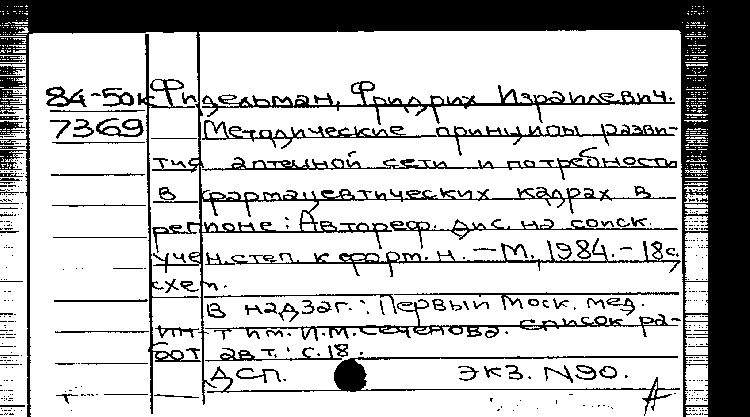 84-50к Фидельман, Фридрих Израилевич.
7369 Методические принципы разви-
тия аптечной сети и потребность
в фармацевтических кадрах в
регионе: Автореф. дис. на соиск.
учен. степ. к. фарм. н. - М., 1984. - 18 с.,
схем.
В надзаг.: Первый Моск. мед.
ин-т им. И.М. Сеченова. Список ра-
бот авт.: с. 18.
ДСП. Экз. N90.
А